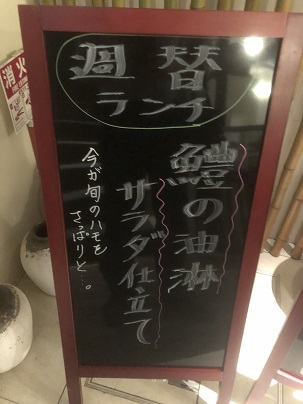 週替
ランチ
鱧の油淋
サラダ仕立て
今が旬のハモを
さっぱりと…。
消火